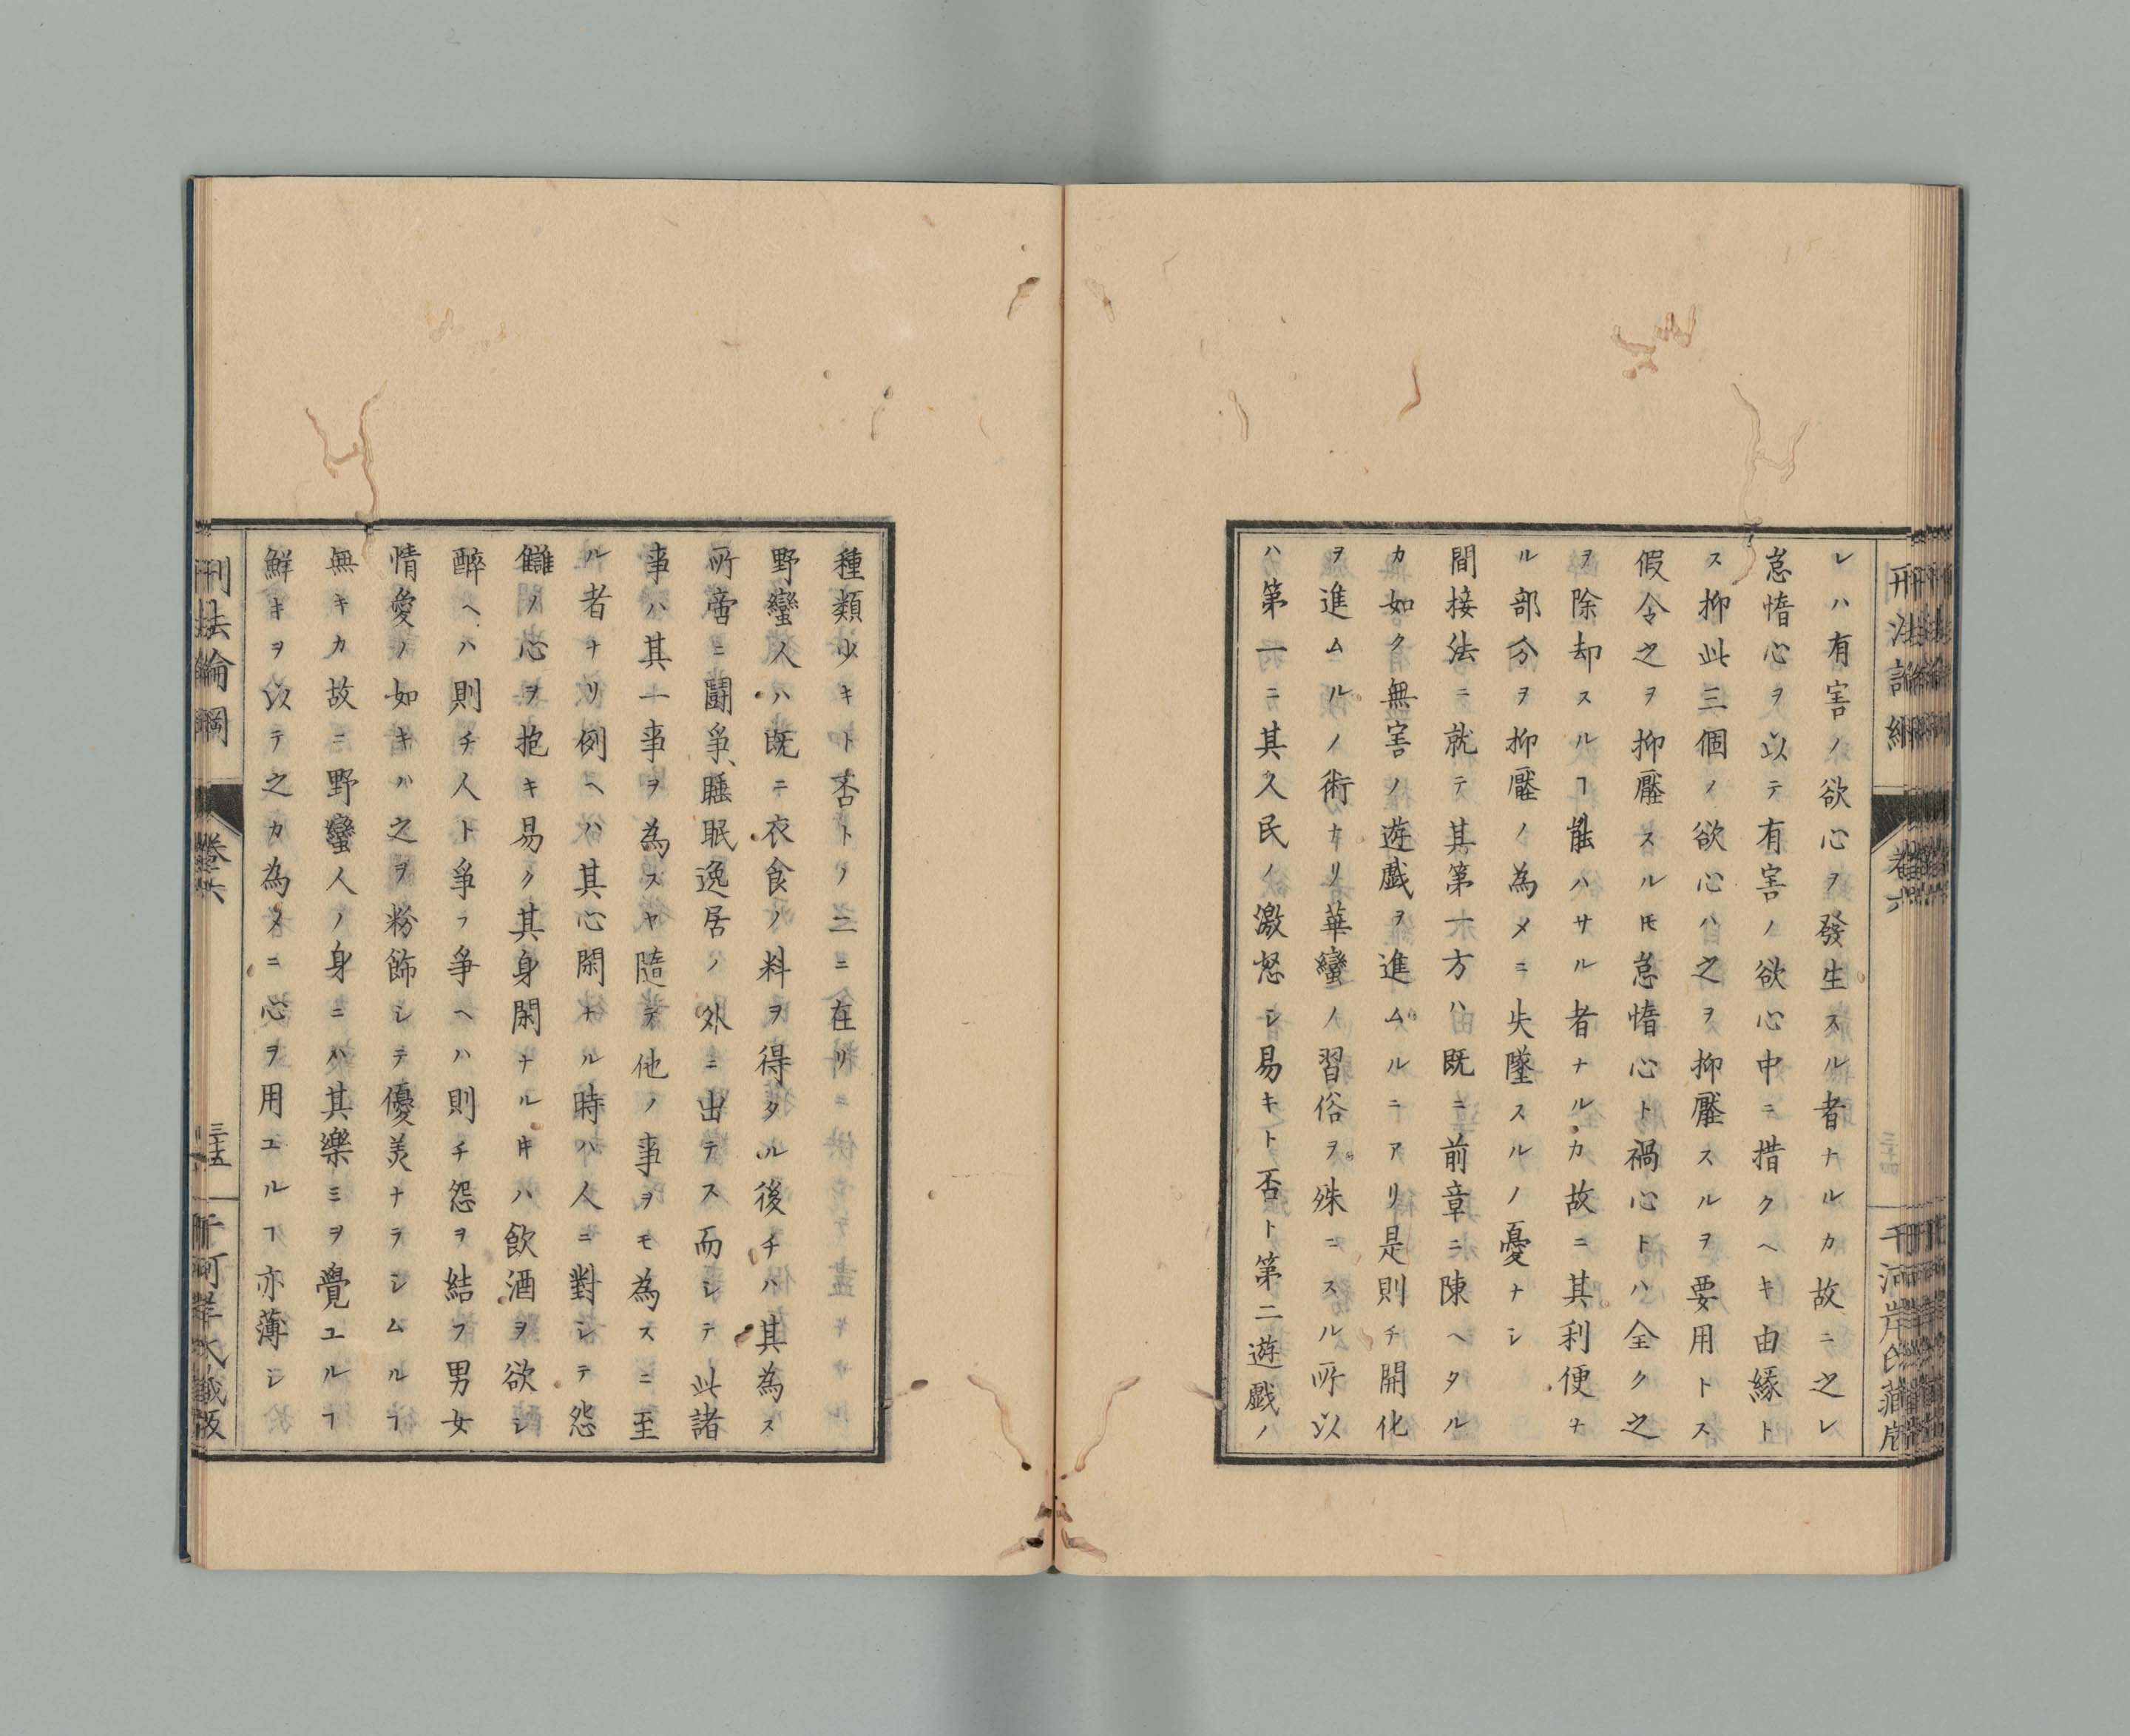 レハ有害ノ欲心ヲ發生スル者ナルカ故ニ之レ
怠惰心ヲ以テ有害ノ欲心中ニ措クヘキ由緣ト
ス抑此三個ノ欲心ハ之ヲ抑壓スルヲ要用トス
假令之ヲ抑壓スルモ怠惰心ト禍心トハ全ク之
ヲ除却スルヿ能ハサル者ナルカ故ニ其利便ナ
ル部分ヲ抑壓ノ為メニ失墜スルノ憂ナシ
間接法ニ就テ其第一方ハ既ニ前章ニ陳ヘタル
カ如ク無害ノ遊戲ヲ進ムルニアリ是則チ開化
ヲ進ムルノ術ナリ華蠻ノ習俗ヲ殊ニスル所以
ハ第一ニ其人民ノ激怒シ易キト否ト第二遊戲ノ
刑法論綱
卷六
種類少キト否トノ二ニ在リ
野蠻人ハ既ニ衣食ノ料ヲ得タル後チハ其為ス
所啻ニ鬪爭睡眠逸居ノ外ニ出テス而シテ此諸
事ハ其一事ヲ為スヤ隨テ他ノ事ヲモ為スニ至
ル者ナリ例ヘハ其心閑ナル時ハ人ニ對シテ怨
讎ノ心ヲ抱キ易ク其身閑ナルキハ飲酒ヲ欲シ
醉ヘハ則チ人ト爭フ爭ヘハ則チ怨ヲ結フ男女
情愛ノ如キハ之ヲ粉飾シテ優美ナラシムルヿ
無キカ故ニ野蠻人ノ身ニハ其樂ミヲ覺ユルヿ
鮮キヲ以テ之カ為メニ心ヲ用ユルヿ亦薄シ
刑法論綱
卷六
三十五